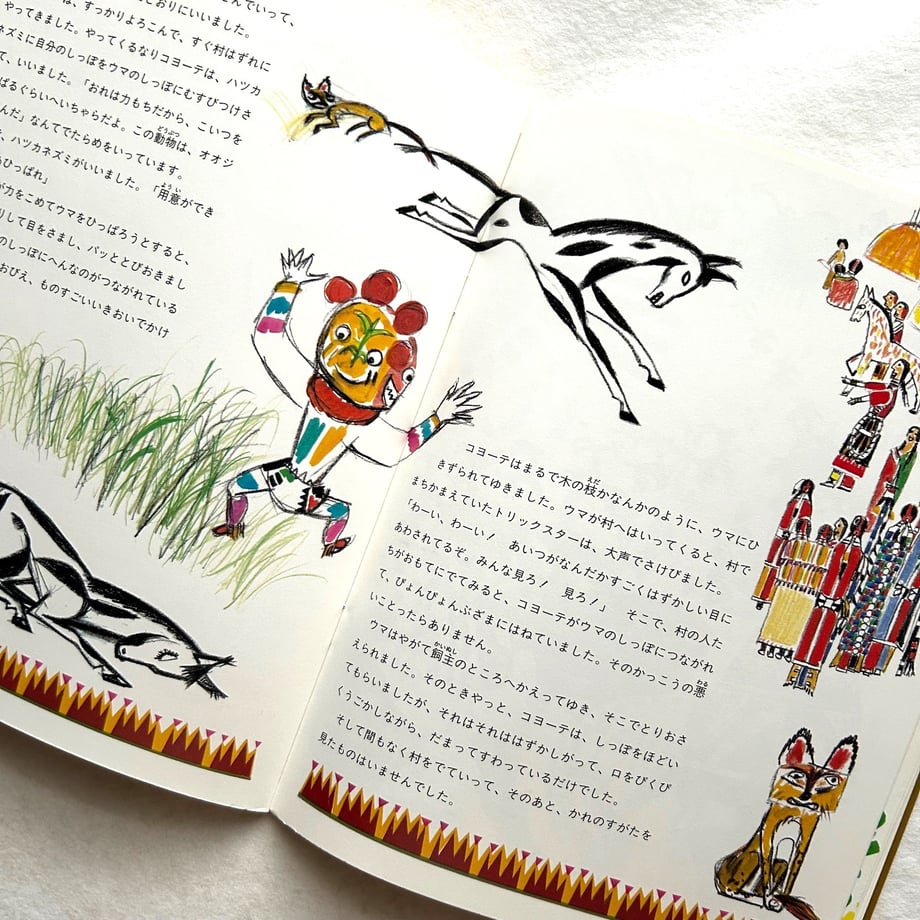 んでいって、
は、すっかりよろこんで、すぐ村はずれに
やってきました。やってくるなりコヨーテは、ハツカ
ネズミに自分のしっぽをウマのしっぽにむすびつけさ
て、いいました。「おれは力もちだから、こいつを
ぱるぐらいへいちゃらだよ。この動物は、オオジ
んだ」なんてでたらめをいっています。
、ハツカネズミがいいました。「用意ができ
ひっぱれ」
が力をこめてウマをひっぱろうとすると、
りして目をさまし、パッととびおきまし
のしっぽにへんなのがつながれている
おびえ、ものすごいいきおいでかけ
コヨーテはまるで木の枝かなんかのように、ウマにひ
きずられてゆきました。ウマが村へはいってくると、村で
まちかまえていたトリックスターは、大声でさけびました。
「わーい、わーい! あいつがなんだかすごくはずかしい目に
あわされてるぞ。みんな見ろ! 見ろ!」 そこで、村の人た
ちがおもてにでてみると、コヨーテがウマのしっぽにつながれ
て、ぴょんぴょんぶざまにはねていました。そのかっこうの悪
いことったらありません。
ウマはやがて飼主のところへかえってゆき、そこでとりおさ
えられました。そのときやっと、コヨーテは、しっぽをほどい
てもらいましたが、それはそれははずかしがって、口をぴくぴ
くうごかしながら、だまってすわっているだけでした。
そして間もなく村をでていって、そのあと、かれのすがたを
見たものはいませんでした。